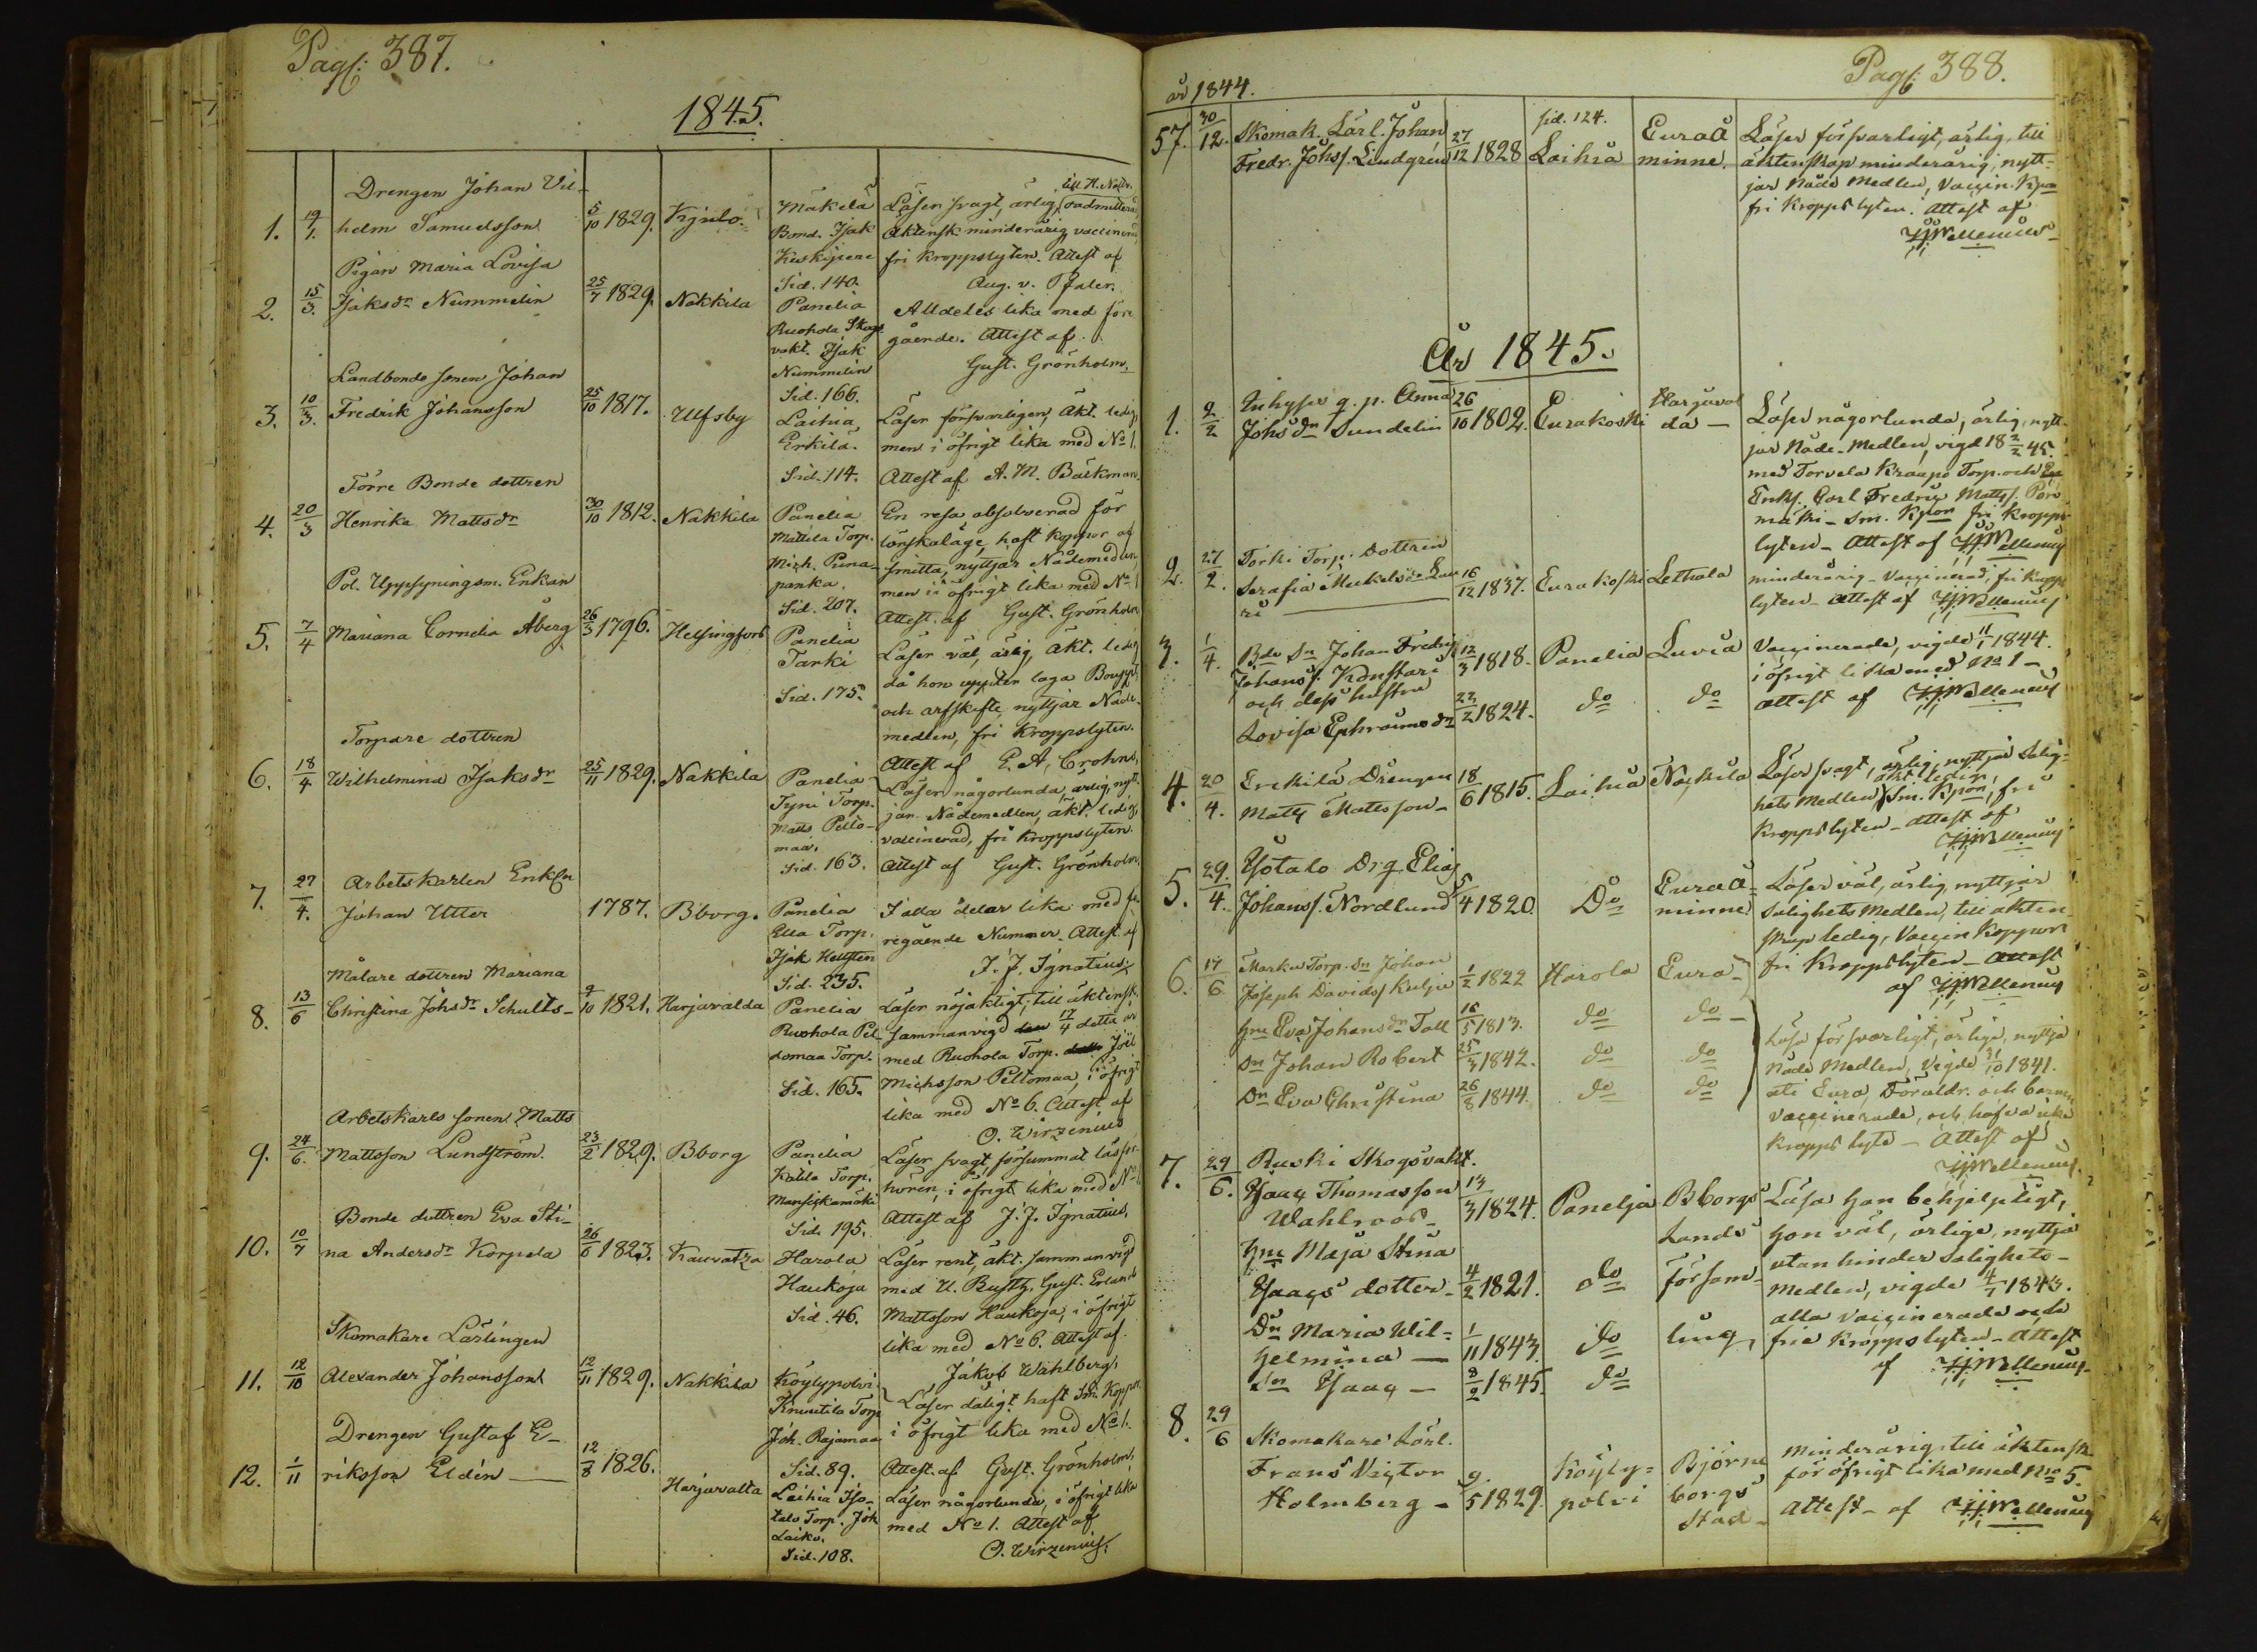 Pag: 387.
1845.
Drengen Johan Vil-
1. 19/1. helm Samuelsson 5/10 1829. Kjulo. Mäkelä Bond. Isak Sid. 140.
Läser svagt, ärlig, oadmitterad till H. Nattv.
Äktensk. minderårig, vaccinerad
fri kroppslyten. Attest af
Aug. v. Pfaler.
Pigan Maria Lovisa
2. 15/3. Isaksdr Nummelin 25/7 1829. Nakkila Panelia
Ruohola Skogs
vakt. Isak
Nummelin
Sid. 166.
Alldeles lika med före
gående. Attest af
Gust. Grönholm.
Landbonde sonen Johan
3. 10/3. Fredrik Johansson 25/10 1817. Ulfsby Laihia
Erkilä.
Sid. 114.
Läser försvarligen, Äkt. ledig,
men i öfrigt lika med No 1.
Attest af A. M. Backman
Torre Bonde dottren
4. 20/3 Henrika Mattsdr 30/10 1812. Nakkila Panelia
Mattila Torp.
Mich. Puna-
panka.
Sid. 207.
En resa absolverad för
lönskaläge, haft koppor af
smitta, nyttjar Nådemedlen,
men i öfrigt lika med No 1
Attest. af Gust. Grönholm
Pol. Uppsyningsm. Enkan
5. 7/4 Mariana Cornelia Åberg 26/3 1796. Helsingfors Panelia
Tarki
Sid. 175.
Läser väl, ärlig, äkt. ledig
då hon uppter laga Bouppt.
och arfskifte, nyttjar Nåde-
medlen, fri kroppslyten.
Attest af E. A. Crohns,
Torpare dottren
6. 18/4 Wilhelmina Isaksdr 25/11 1829. Nakkila Panelia
Tyni Torp.
Matts Pelto-
maa.
Sid. 163.
Läser någorlunda, ärlig, nytt-
jar Nådemedlen, äkt. ledig,
vaccinerad, fri kroppslyten.
Attest af Gust. Grönholm.
Arbetskarlen Enkln
7. 27/4. Johan Utter 1787. Bborg. Panelia
Ella Torp.
Isak Hellsten
Sid. 235.
I alla delar lika med fö-
regående Nummer. Attest af
J. J. Ignatius.
Målare dottren Mariana
8. 13/6 Christina Johsdr Schults 9/10 1821. Harjavalda Panelia
Ruohola Pel-
domaa Torp.
Sid. 165.
Läser nöjaktigt; till äktensk.
sammanvigd den 17/4 detta år
med Ruohola Torp. Joël
Michsson Peltomaa, i öfrigt
lika med No 6. Attest af
O. Wirzenius
Arbetskarls sonen Matts
9. 24/6. Mattsson Lundström. 23/2 1829. Bborg Panelia
Katila Torp.
Mansickamäki
Sid. 195.
Läser svagt, försummat läsför-
hören, i öfrigt lika med No 1.
Attest af J. J. Ignatius.
Bonde dottren Eva Sti-
10. 10/7 na Andersdr Korpela 26/6 1823. Kauvatza Harola
Haukoja
Sid. 46.
Läser rent, äkt. sammanvigd
med U. Bust. Gust. Erland
Mattsson Haukoja, i öfrigt
lika med No 6. Attest af
Jakob Wahlberg.
Skomakare Lärlingen
11. 12/10 Alexander Johansson 12/11 1829. Nakkila Köylypolvi
Knuutila Torp.
Joh. Rajamaa
Sid. 89.
Läser dåligt haft Sm. Koppor
i öfrigt lika med No 1.
Attest. af Gust. Grönholm.
Drengen Gustaf E-
12. 1/11 riksson Eldén 12/8 1826. Harjavalta Laihia Iso-
talo Torp. Joh
Laiko.
Sid. 108.
Läser någorlunda, i öfrigt lika
med No 1. Attest af
O. Wirzenius.
Pag: 388.
år 1844.
57. 30/12. Skomak. Lärl. Johan
Fredr. Johss. Lindgrén 27/12 1828 sid. 124. Laihia Euraå
minne.
Läser försvarligt, ärlig, till
äktenskap minderårig, nytt-
jar Nåde Medlen, Vaccin. Kpor
fri kroppslyten. Attest af
JJWellenius
År 1845.
1. 2/2 Inhyses q. p. Anna
Johsdr Sundelin 26/10 1802. Eurakoski Harjaval
da
Läser någorlunda, ärlig, nytt-
jar Nåde-Medlen, vigd 18 2/2 45.
med Torvela Kraapo Torp. och
Enkl. Carl Fredric Matts. Poro
mäki - Sm. Kpor fri kropps
lyten - Attest af JJWellenius
2. 27/2. Torki Torp. Dottren
Serafia Michelsdr Lau
ri 16/12 1837. Eurakoski Lethala
minderårig - Vaccinerad, fri kropps
lyten - Attest af JJWellenius
3. 1/4. Bde Sn Johan Fredric
Johanss. Konstari
och dess hustru
Lovisa Ephraimsdr
12/3 1818. Panelia Luvia
22/2 1824. do do
Vaccinerade, vigde 11/1 1844.
i öfrigt lika med No 1 -
attest af JJWellenius
4. 20/4. Erckilä Drengen
Matts Mattsson 18/6 1815. Laihia Nackila
Läser svagt, ärlig, nyttjar Salig-
hets Medlen, äkt. ledig, Sm. Kpor, fri
kroppslyten - attest af
JJWellenius
5. 29/4. Isotalo Drg Elias
Johanss. Nordlund 5/4 1820. Do Euraå
minne
Läser väl, ärlig, nyttjar
Salighets Medlen, till äkten-
skap ledig, Vaccin Koppor
fri kroppslyten - Attest
af JJWellenius
6. 17/6 Marku Torp. Sn Johan
Joseph Davids. Kulju 1/2 1822 Harola Eura
Hu Eva Johansdr Tall 16/5 1813. do do
Sn Johan Robert 25/3 1842. do do
Dr Eva Christina 26/8 1844. do do
Läsa försvarligt, ärlige, nyttja
Nåde Medlen, Vigde 31/10 1841.
uti Eura, Föräldr. och barnen
vaccinerade, och hafva icke
kropps lyte - Attest af
JJWellenius.
7. 29/6. Ruski Skogsvakt.
Isaac Thomasson
Wahlroos 13/3 1824. Panelja Bborgs
Lands
försam-
ling,
Hu Maja Stina
Isaacs dotter 4/2 1821. do
Dr Maria Wil-
helmina 1/11 1843. do
Sn Isaac 8/2 1845. do
Läsa han behjelpligt,
hon väl, ärlige, nyttja
utan hinder Salighets-
Medlen, vigde 4/1 1843.
alla vaccinerade och
frie kroppslyten - Attest
af JJWellenius
8. 29/6 Skomakare Lärl.
Frans Victor
Holmberg 9/5 1829. Köyly-
polvi Björne
borgs
Stad
Minderårig till äktensk.
för öfrigt lika med No 5.
Attest - af JJWellenius